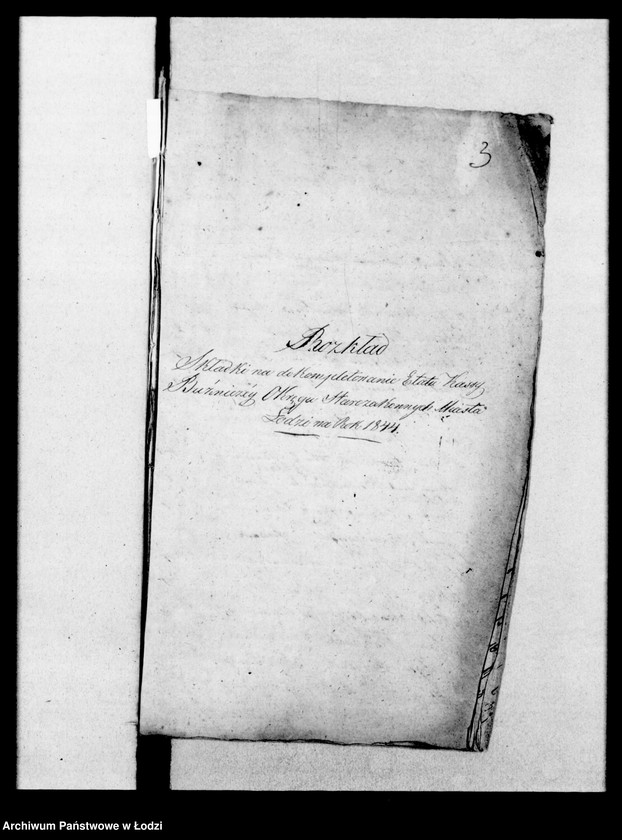 3
Rozkład
Składki na dokompletowanie Etatu Kassy
Bużniczéy Okręgu Starozakonnych Miasta
Łodzi na Rok 1844.
Archiwum Państwowe w Łodzi